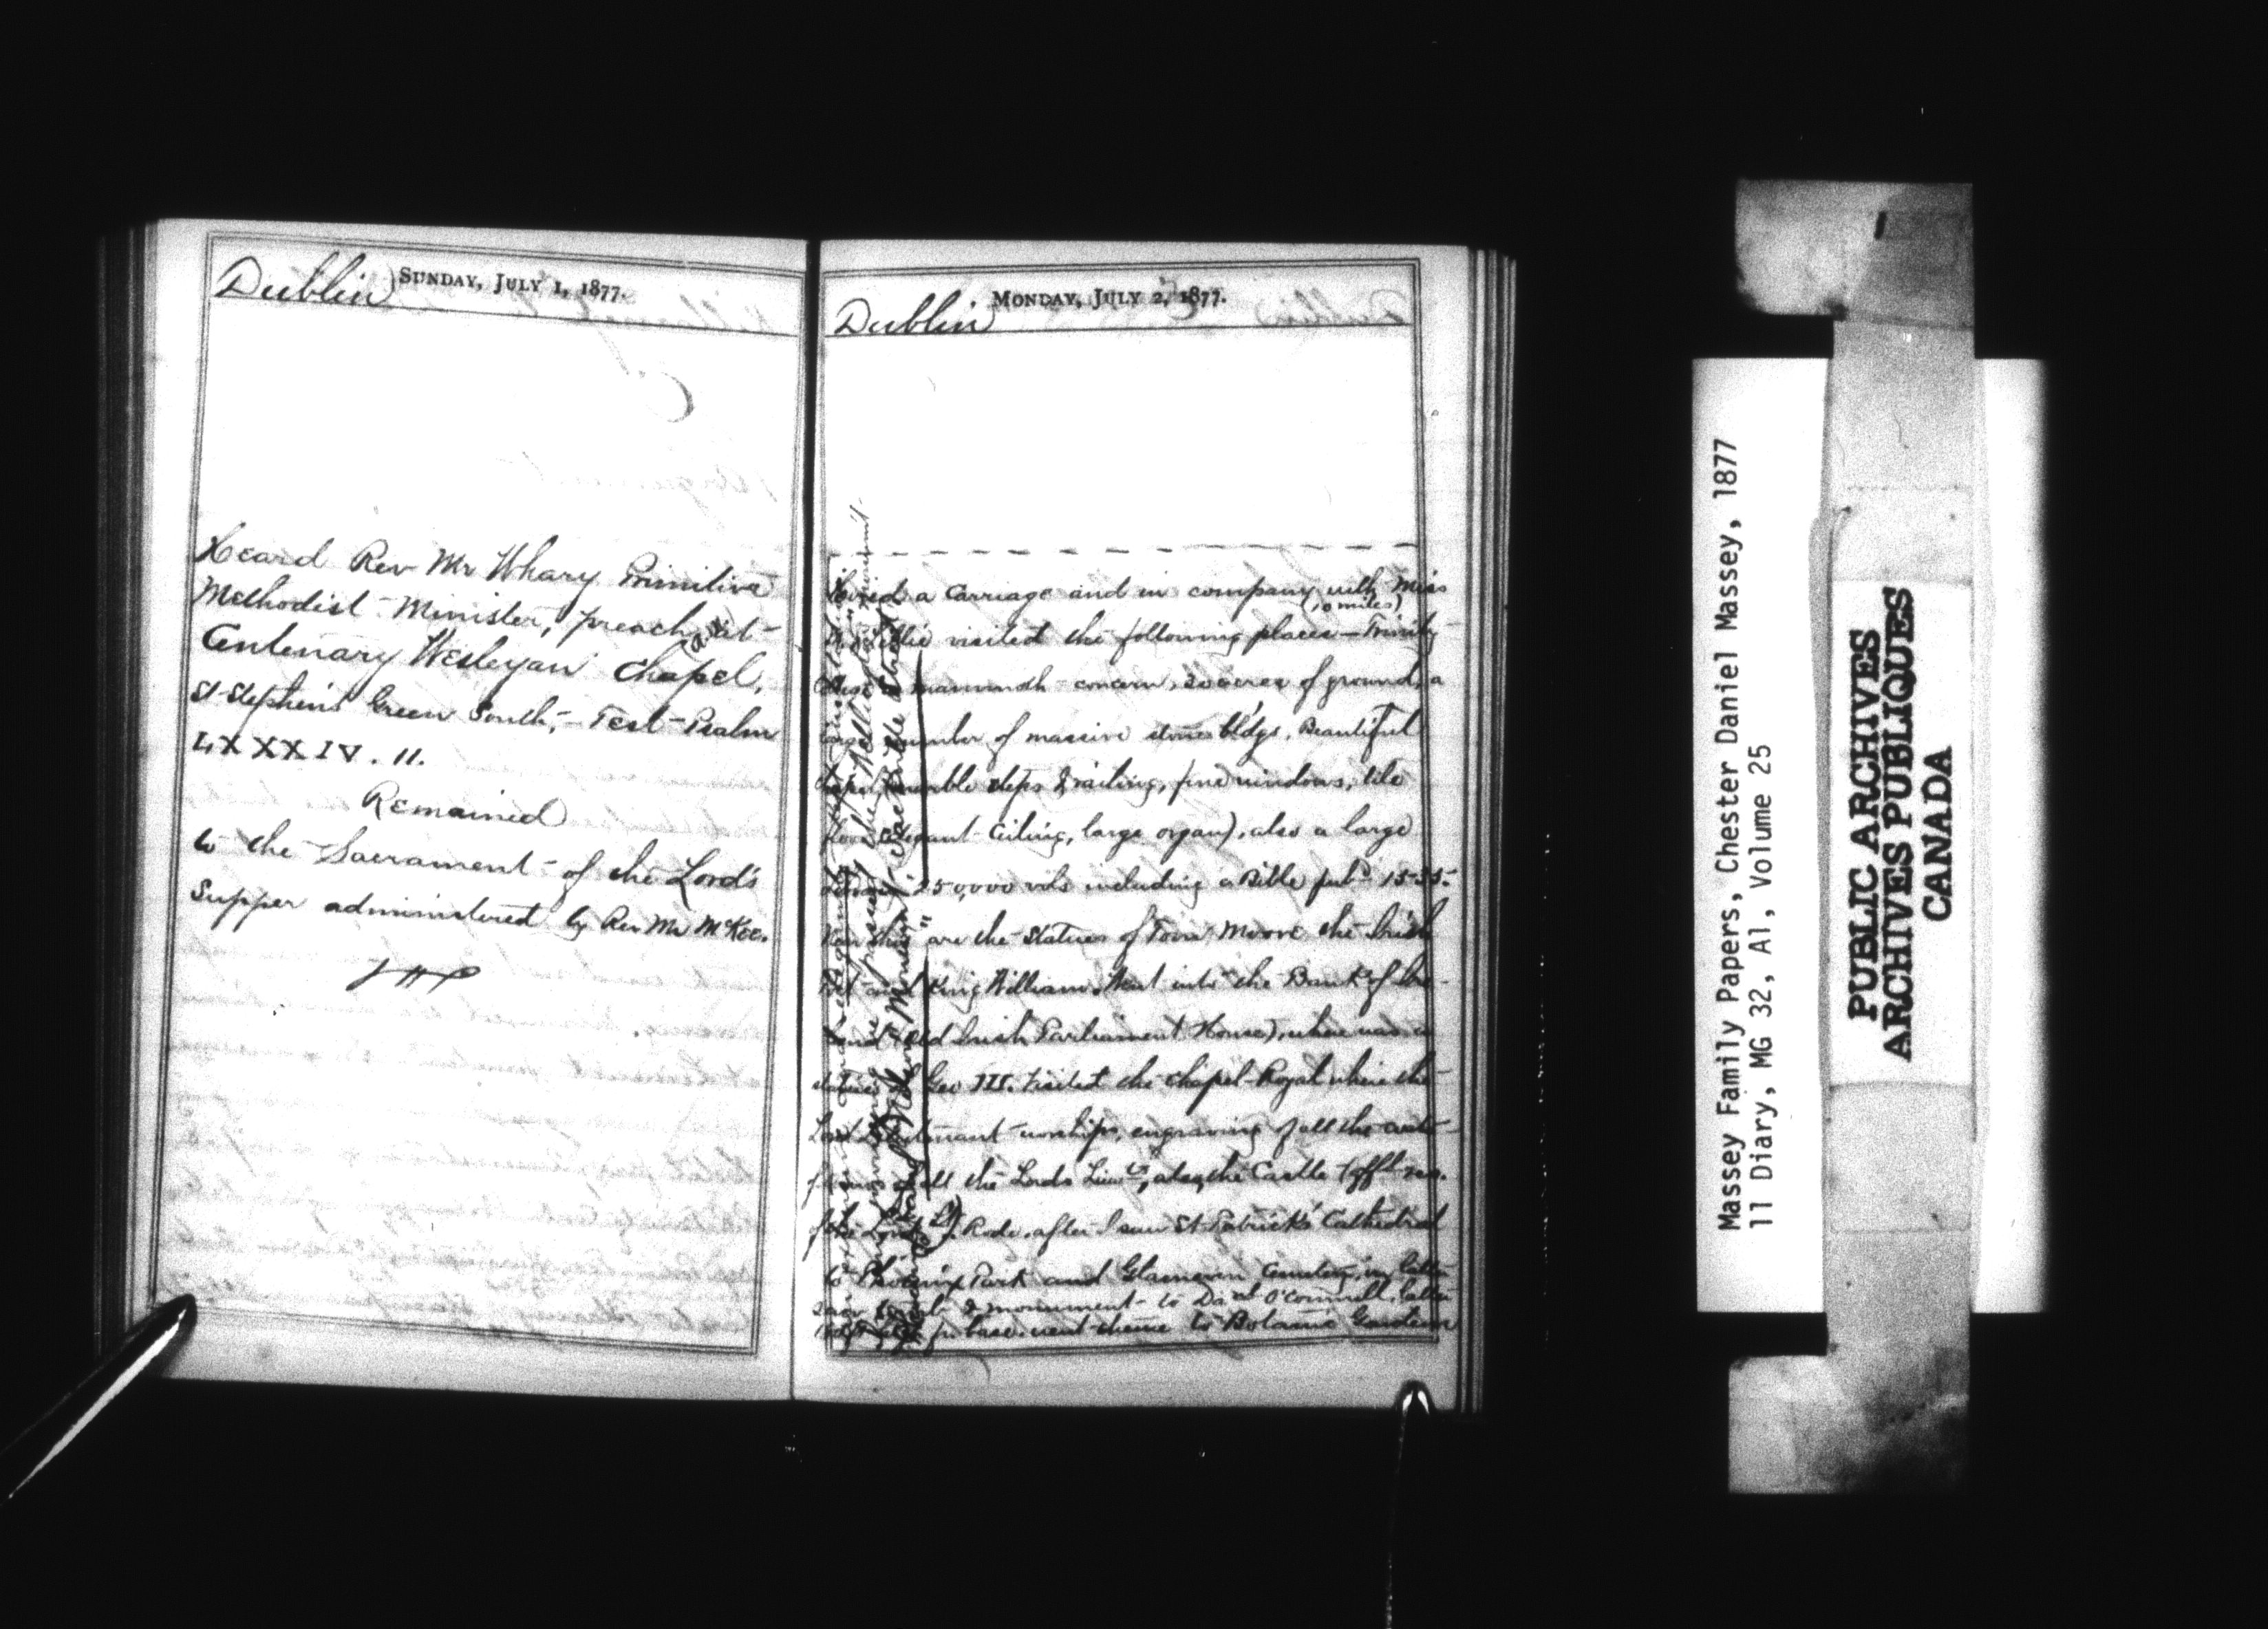 SUNDAY, JULY 1, 1877.
Dublin
Heard Rev Mr Whary Primitive
Methodist Minister, preach at
Centenary Wesleyan Chapel,
St Stephens Green South, - Text - Psalm
LXXXIV. 11.
Remained
to the Sacrament of the Lord's
Supper administered by Rev Mr McKee.
MONDAY, JULY 2, 1877.
Dublin
a Carriage and in company with Miss
(10 miles)
visited the following places - Trinity
mammoth concern, 20 acres of ground, a
large number of massive stone bldgs, Beautiful
marble steps & railing, fine windows, tile
floor elegant ceiling, large organ), also a large
Library 250,000 vols including a Bible pubd 1535.
Near this are the statues of Tom Moore the Irish
Poet and King William. Went into the Bank of Ire-
land (old Irish Parliament House), where was a
statue of Geo III. Visited the Chapel Royal where the
Lord Lieutenant worships, engraving of all the coats
of arms of all the Lords Lieuts, also the Castle (offl res.
of the Lord Lt). Rode, after I saw St Patrick's Cathedral
to Phoenix Park and Glasnevin Cemetery, in latter
saw tomb & monument to Danl O'Connell, latter
base. went thence to Botanic Gardens
Nelson's Monument, Sackville Street
Massey Family Papers, Chester Daniel Massey, 1877
11 Diary, MG 32, A1, Volume 25
PUBLIC ARCHIVES
ARCHIVES PUBLIQUES
CANADA